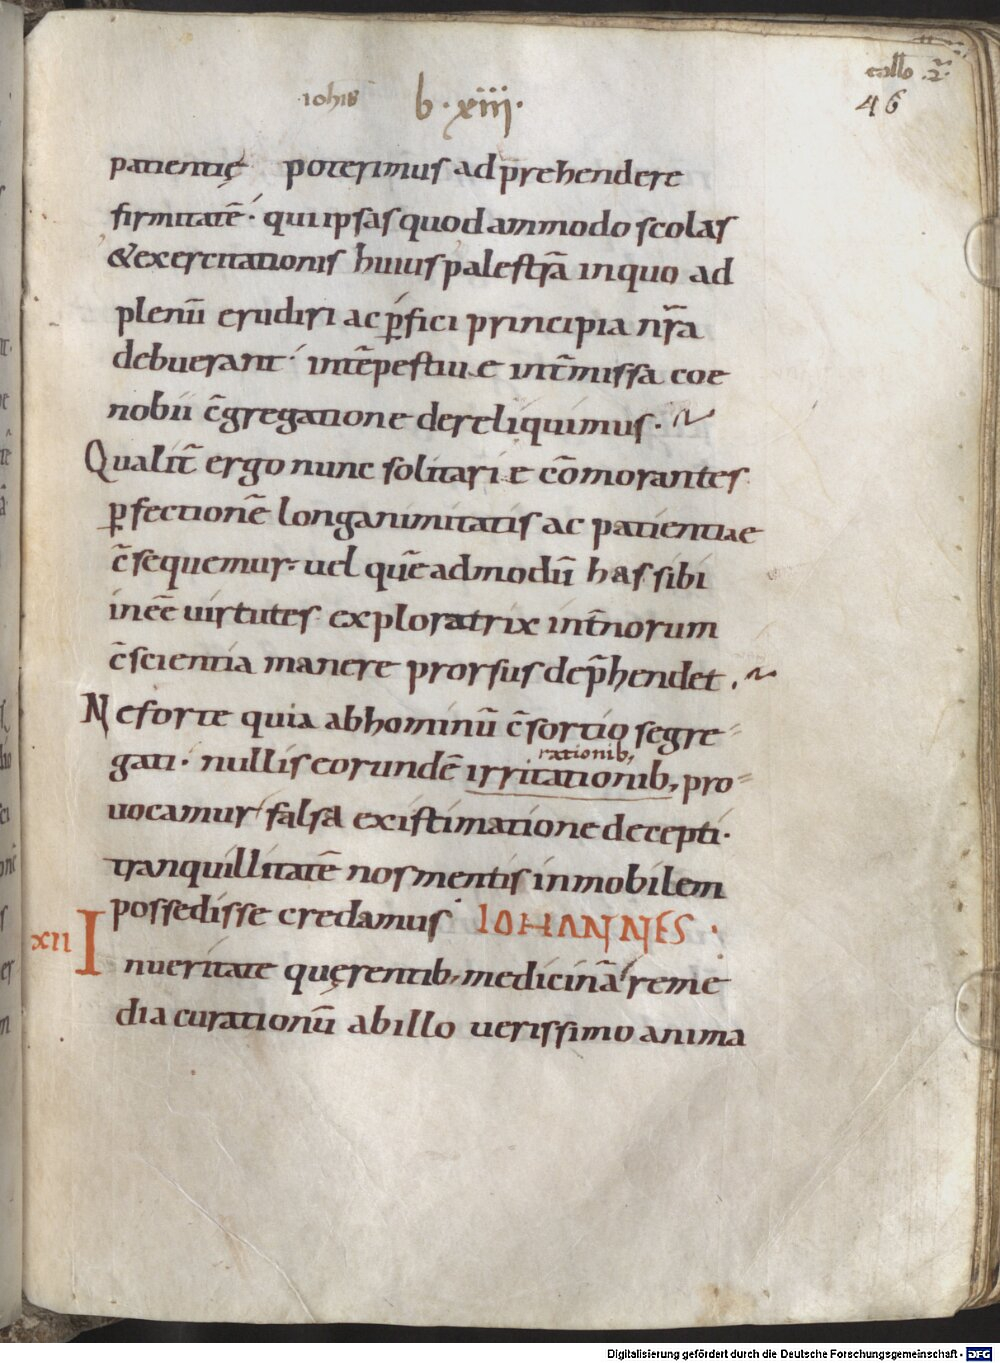 iohis b. xiii.
collo .2.
46
patientię poterimus adp̄rehendere
firmitatē. qui ipsas quodammodo scolas
&exercitationis huius palestrā in quo ad
plenū erudiri ac ꝑfici principia nr̄a
debuerant. intēpestiue int̄missa coe
nobii c̄gregatione dereliquimus.
Qualit̄ ergo nunc solitarie cōmorantes
ꝑfectionē longanimitatis ac patientiae
c̄sequemur. uel quēadmodū has sibi
ineē uirtutes exploratrix int̄norum
c̄scientia manere prorsus dep̄hendet.
Ne forte quia ab hominū c̄sortio segre-
rationib;
gati. nullis eorundē irritationib; pro-
uocamur falsa existimatione decepti.
tranquillitatē nos mentis inmobilem
possedisse credamus. IOHANNES.
xii Inueritate quęrentib; medicinā reme
dia curationū ab illo uerissimo anima
Digitalisierung gefördert durch die Deutsche Forschungsgemeinschaft - DFG